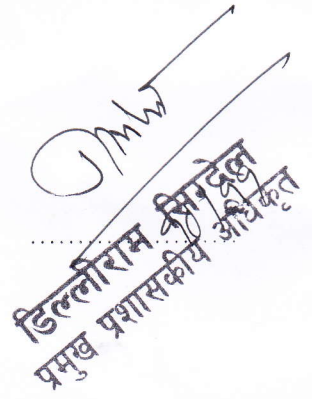 डिल्लीराम सिग्देल
प्रमुख प्रशासकीय अधिकृत